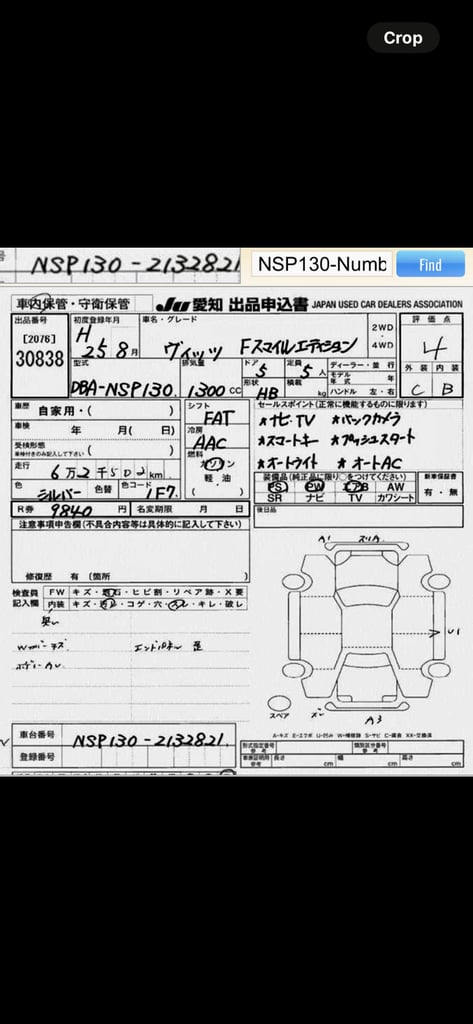 Crop
号 NSP130-2132821 NSP130-Numb Find
車内保管・守衛保管 JU 愛知 出品申込書 JAPAN USED CAR DEALERS ASSOCIATION
出品番号 初度登録年月 車名・グレード 2WD 4WD 評価点
[2076] 30838 H 25 8月 ヴィッツ Fスマイルエディション 4
型式 排気量 ドア 定員 ディーラー・並行 外装 内装
DBA-NSP130. 1300 CC 5 5人 モデル年式 年 C B
形状 HB 積載 kg ハンドル 左・右
車歴 自家用・( ) シフト FAT セールスポイント(正常に機能するものに限ります)
車検 年 月( 日) 冷房 AAC ★ナビ・TV ★バックカメラ
受検形態 車検付きのみ記入して下さい ( ) 燃料 ★スマートキー ★プッシュスタート
走行 6万2千502km ガソリン 軽油 ( ) ★オートライト ★オートAC
色 シルバー 色替 色コード 1F7. 装備品(純正品に限り○をつけてください) 新車保証書
PS PW エアB AW 有・無
R券 9840 円 名変期限 月 日 SR ナビ TV カワシート
注意事項申告欄(不具合内容等は具体的に記入して下さい) 後日品
修復歴 有 (箇所
検査員記入欄 FW キズ・飛石・ヒビ割・リペア跡・X要
内装 キズ・汚レ・コゲ・穴・スレ・キレ・破レ
A1
U1
スペア
A3
A-キズ E-エクボ U-凹み W-補修跡 S-サビ C-腐食 XX-交換済
車台番号 NSP130-2132821.
登録番号
型式指定番号 参考 類別区分番号 参考
車庫証明用参考 長さ cm 幅 cm 高さ cm